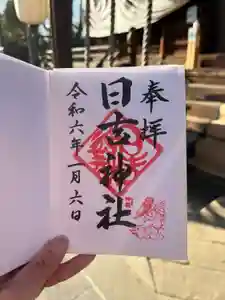 奉拝
日吉神社
令和六年一月六日